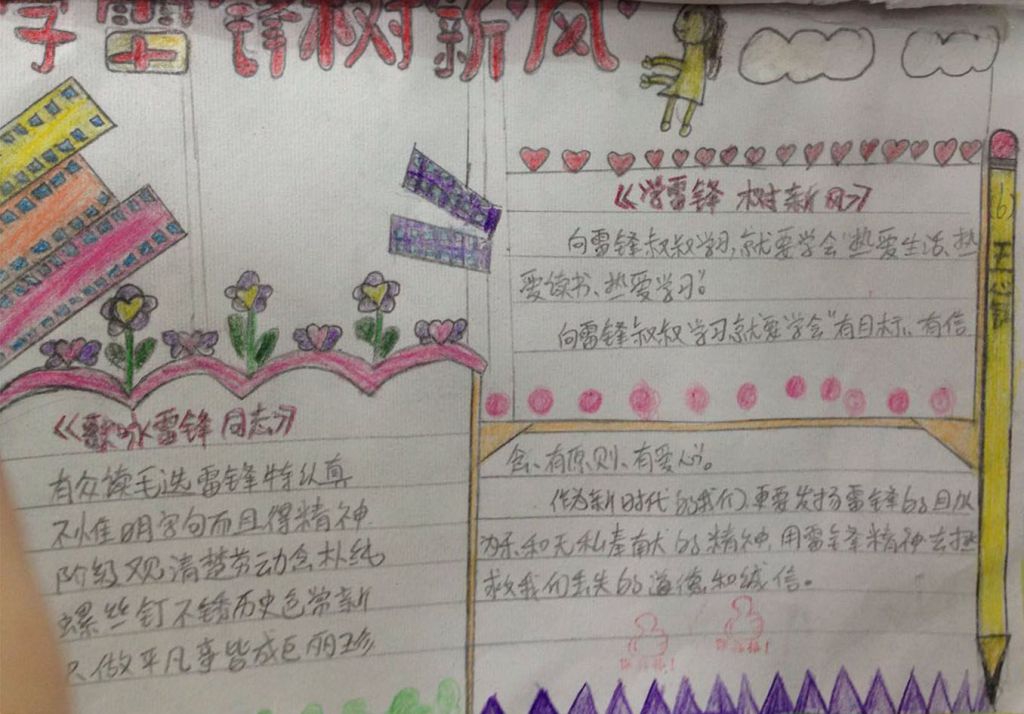 学雷锋树新风
《学雷锋 树新风》
向雷锋叔叔学习,就要学会"热爱生活、热
爱读书、热爱学习"。
向雷锋叔叔学习,就要学会"有目标、有信
念、有原则、有爱心"。
作为新时代的我们,更要发扬雷锋的自以
为乐和无私奉献的精神,用雷锋精神去拯
救我们丢失的道德和诚信。
《歌咏雷锋同志》
有众读毛选雷锋特认真
不惟明字句而且得精神
阶级观清楚劳动念朴纯
螺丝钉不锈历史色常新
只做平凡事皆成巨丽珍